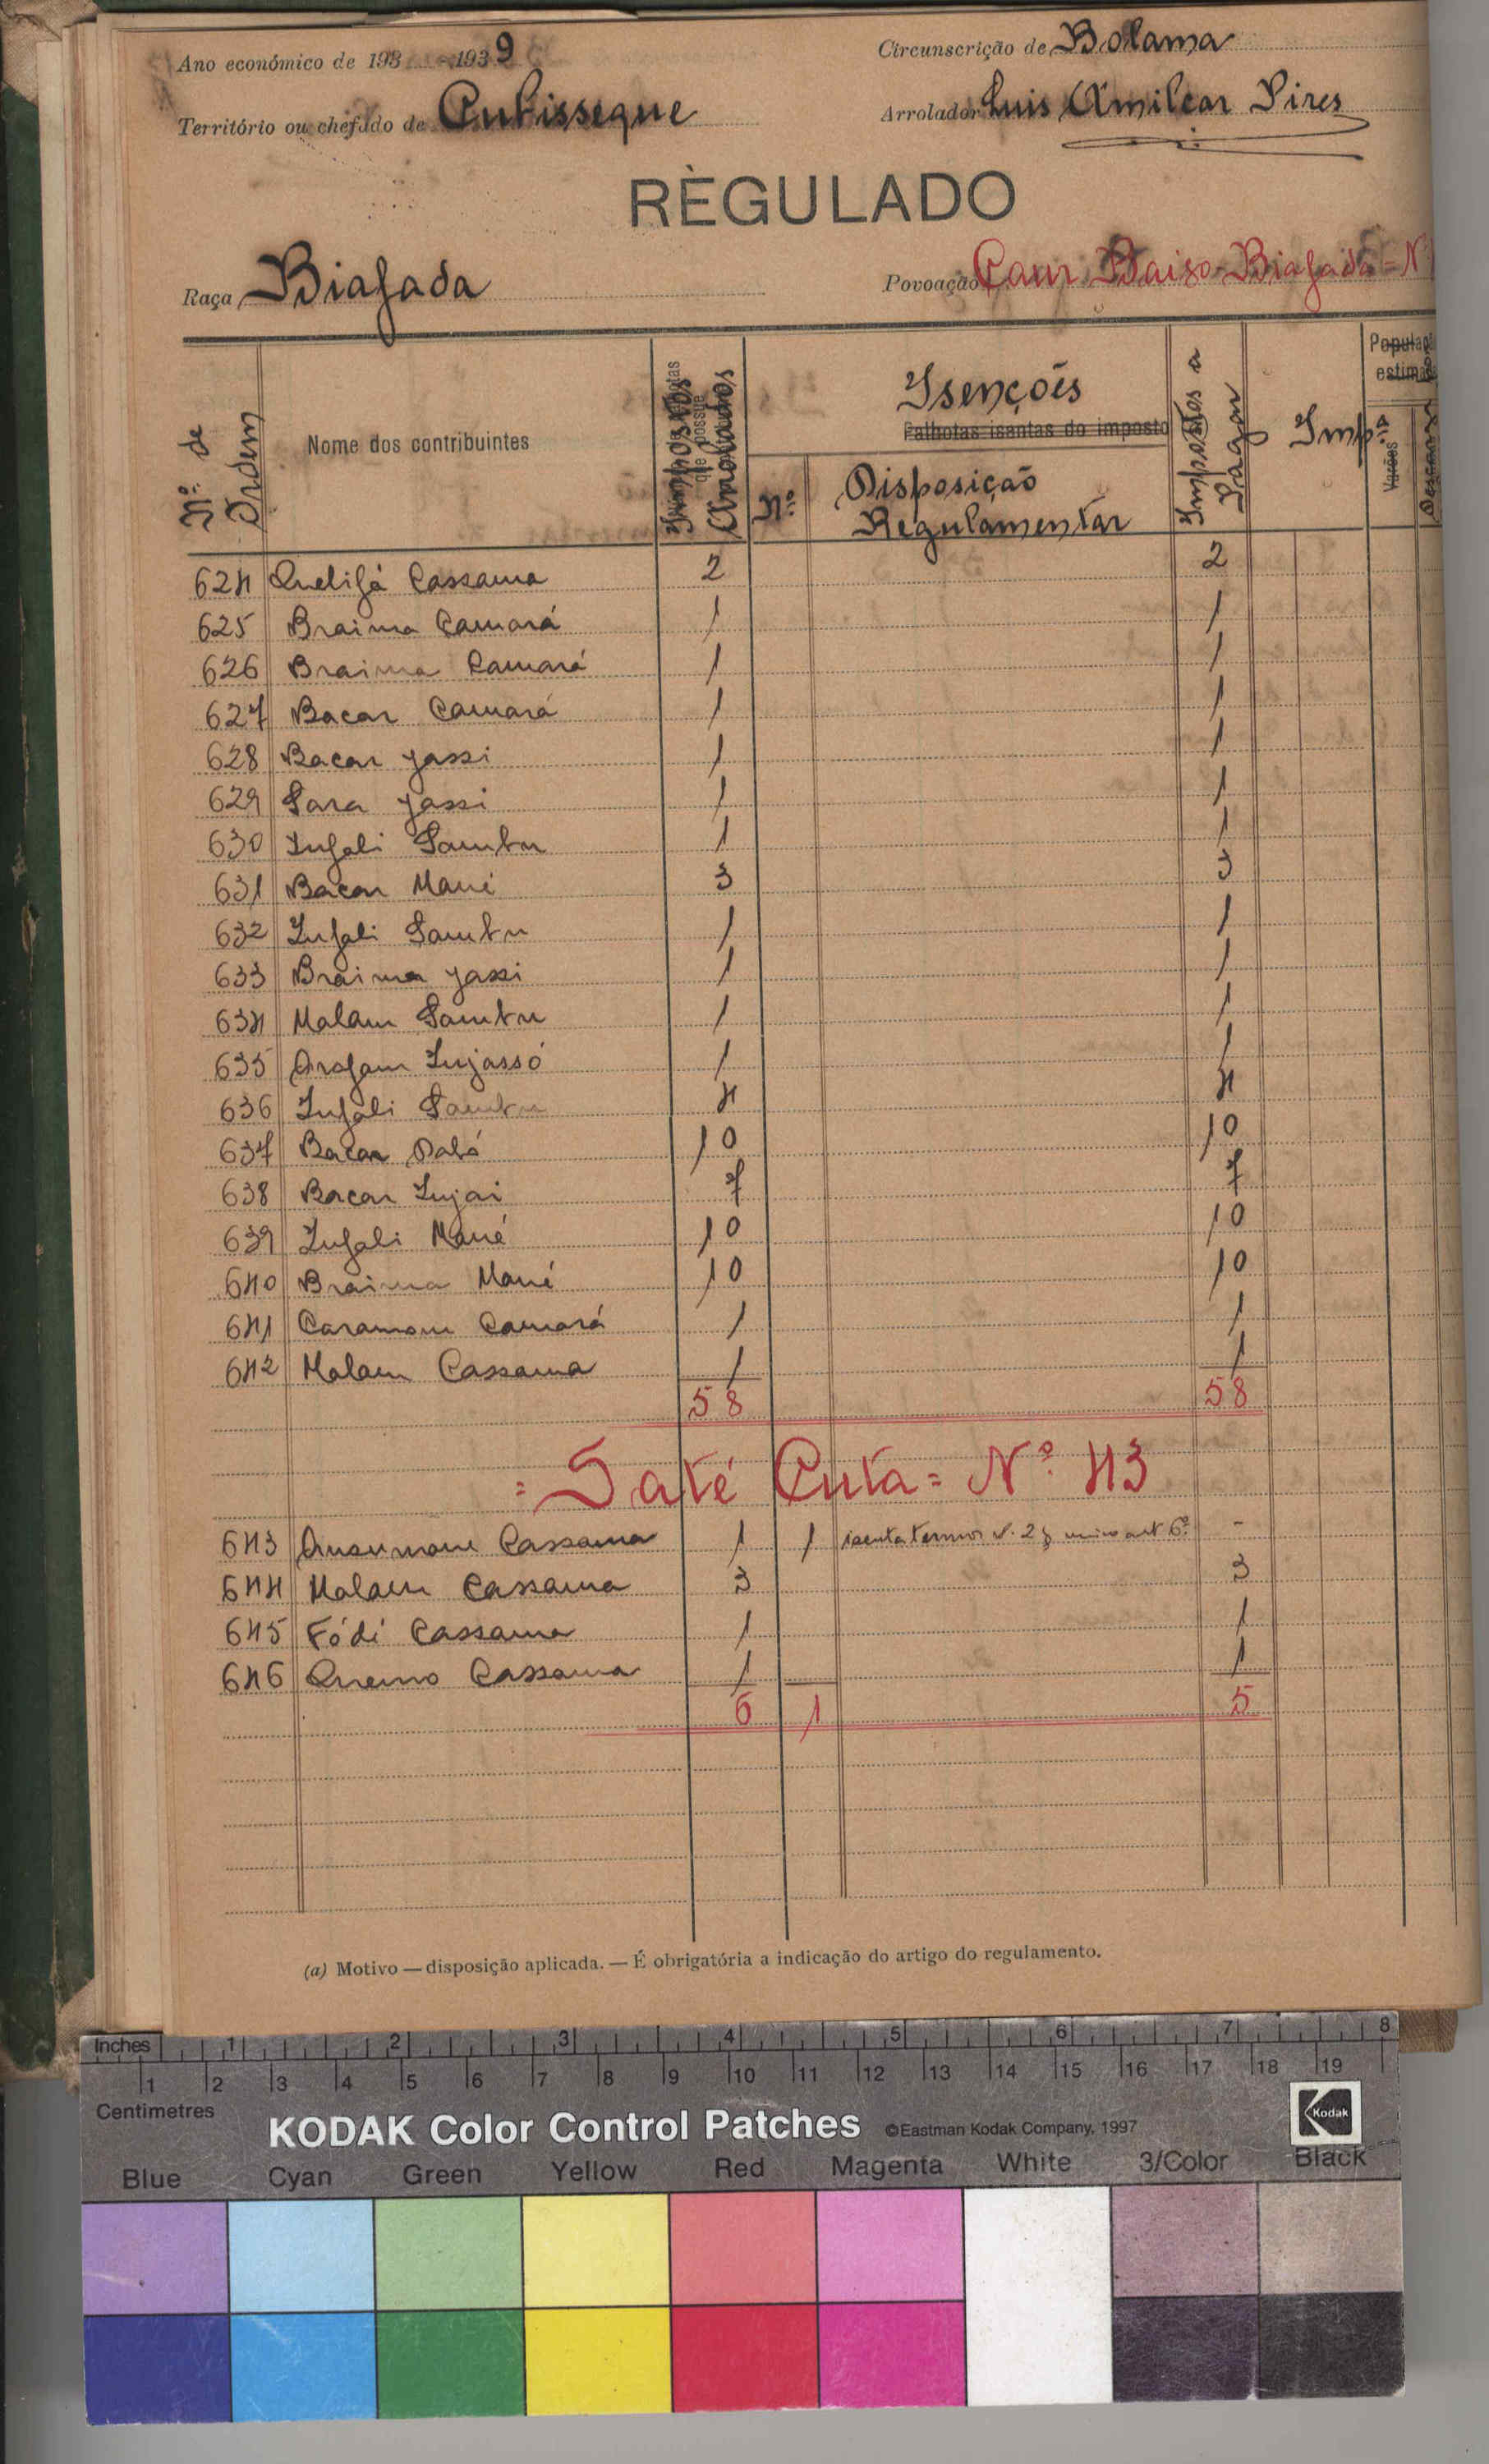 Ano económico de 193 -1939
Circunscrição de Bolama
Território ou chefado de Cubisseque
Arrolador Luis Amilcar Pires
RÈGULADO
Raça Biafada
Povoação Baiso-Biafada = N
Nº de Ordem
Nome dos contribuintes
Impostos Arrolados
Isenções
Palhotas isentas do imposto
Nº
Disposição Regulamentar
Impostos a Pagar
Imp.
Varões
624 Quelifá Cassama 2 2
625 Braima Camará 1 1
626 Braima Camará 1 1
627 Bacar Camará 1 1
628 Bacar Jassi 1 1
629 Sara Jassi 1 1
630 Infali Sambu 1 1
631 Bacar Mané 3 3
632 Infali Sambu 1 1
633 Braima Jassi 1 1
634 Malam Sambu 1 1
635 Arafam Injassó 1 1
636 Infali Sambu 4 4
637 Bacar Dabó 10 10
638 Bacar Injai 7 7
639 Infali Mané 10 10
640 Braima Mané 10 10
641 Caramom Camará 1 1
642 Malam Cassama 1 1
58 58
= Saté Cuta = Nº 43
643 Ansumane Cassama 1 1 isenta termos n. 2 § unico art 6º -
644 Malam Cassama 3 3
645 Fódé Cassama 1 1
646 Quemo Cassama 1 1
6 1 5
(a) Motivo — disposição aplicada. — É obrigatória a indicação do artigo do regulamento.
Inches 1 2 3 4 5 6 7 8
1 2 3 4 5 6 7 8 9 10 11 12 13 14 15 16 17 18 19
Centimetres
KODAK Color Control Patches ©Eastman Kodak Company, 1997 Kodak
Blue Cyan Green Yellow Red Magenta White 3/Color Black